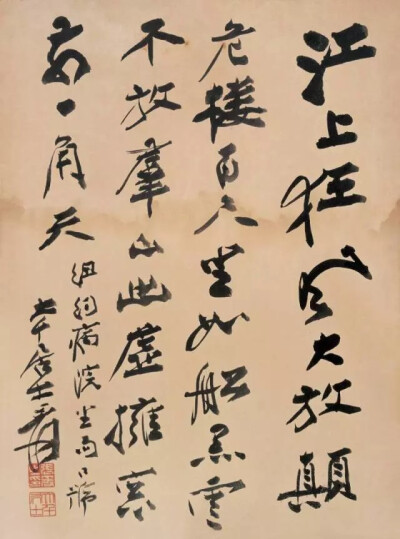 江上狂風大放顛
危樓百尺坐如船黑雲
不放羣山出虛擁窗
前一角天
紐約病院坐雨口號
大千居士爰